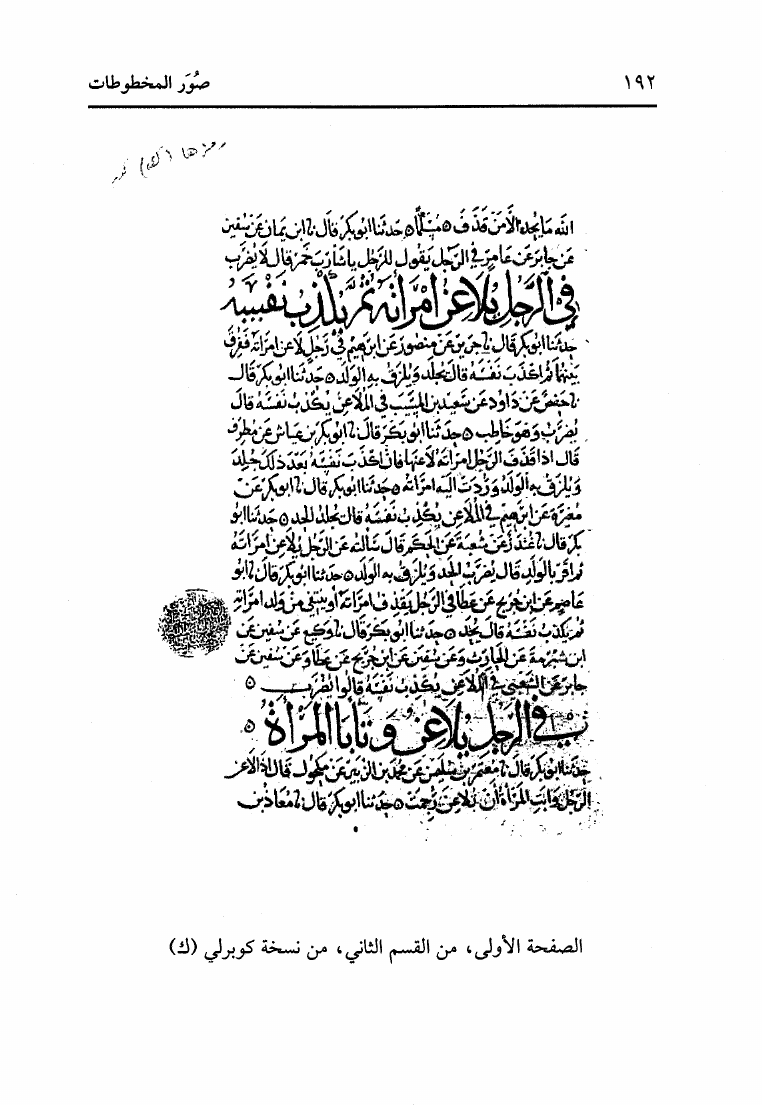 ١٩٢ صُوَر المخطوطات
رمزها (ك)
الله ما يجد الا من قذف ٥ حدثنا ابو بكر قال نا ابن يمان عن سفين
عن جابر عن عامر في الرجل يقول للرجل يا شارب خمر قال لا يضرب
في الرجل يلاعن امرأته ثم يكذب نفسه
حدثنا ابو بكر قال نا جرير عن منصور عن ابرهيم في رجل لاعن امراته ففرق
بينهما ثم اكذب نفسه قال يجلد ويلزق به الولد ٥ حدثنا ابو بكر قال
نا حفص عن داود عن سعيد بن المسيب في الملاعن يكذب نفسه قال
يضرب وهو خاطب ٥ حدثنا ابو بكر قال نا ابو بكر بن عياش عن مطرف
قال اذا قذف الرجل امراته لاعنها فان اكذب نفسه بعد ذلك جلد
ويلزق به الولد وردت اليه امراته ٥ حدثنا ابو بكر قال نا ابو بكر عن
مغيرة عن ابرهيم في الملاعن يكذب نفسه قال يجلد الحد ٥ حدثنا ابو
بكر قال نا غندر عن شعبة عن الحكم قال سالته عن الرجل يلاعن امراته
ثم اقر بالولد قال يضرب الحد ويلزق به الولد ٥ حدثنا ابو بكر قال نا ابو
عاصم عن ابن جريج عن عطا في الرجل يقذف امراته او ينتفي من ولد امراته
ثم يكذب نفسه قال يجلد ٥ حدثنا ابو بكر قال نا وكيع عن سفين عن
ابن شبرمة عن الحارث وعن سفين عن ابن جريج عن عطا وعن سفين عن
جابر عن الشعبي في الملاعن يكذب نفسه قالوا يضرب ٥
في الرجل يلاعن وتابا المرأة ٥
حدثنا ابو بكر قال نا معتمر بن سليمن عن محمد بن الزبير عن مكحول قال اذا لاعن
الرجل وابت المرأة ان تلاعن رجمت ٥ حدثنا ابو بكر قال نا معاذ بن
الصفحة الأولى، من القسم الثاني، من نسخة كوبرلي (ك)